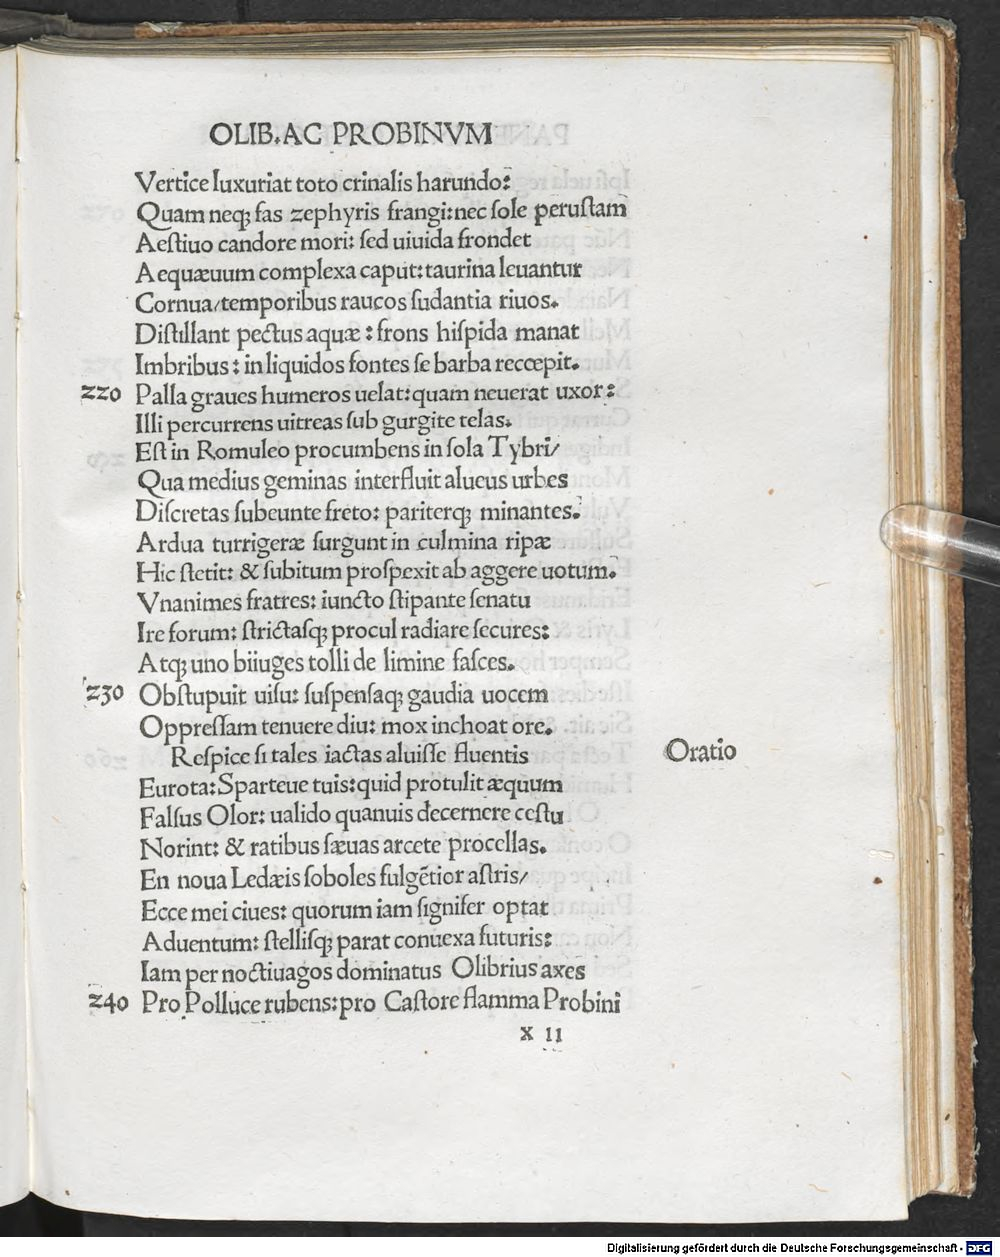 OLIB.AC PROBINVM
Vertice luxuriat toto crinalis harundo:
Quam neqꝫ fas zephyris frangi: nec sole perustam
Aestiuo candore mori: sed uiuida frondet
Aequæuum complexa caput: taurina leuantur
Cornua/temporibus raucos sudantia riuos.
Distillant pectus aquæ: frons hispida manat
Imbribus: in liquidos fontes se barba reccepit.
220 Palla graues humeros uelat: quam neuerat uxor:
Illi percurrens uitreas sub gurgite telas.
Est in Romuleo procumbens insola Tybri/
Qua medius geminas interfluit alueus urbes
Discretas subeunte freto: pariterqꝫ minantes.
Ardua turrigeræ surgunt in culmina ripæ
Hic stetit: & subitum prospexit ab aggere uotum.
Vnanimes fratres: iuncto stipante senatu
Ire forum: strictasqꝫ procul radiare secures:
Atqꝫ uno biiuges tolli de limine fasces.
230 Obstupuit uisu: suspensaqꝫ gaudia uocem
Oppressam tenuere diu: mox inchoat ore.
Respice si tales iactas aluisse fluentis
Oratio
Eurota: Sparteue tuis: quid protulit æquum
Falsus Olor: ualido quanuis decernere cestu
Norint: & ratibus sæuas arcete procellas.
En noua Ledæis soboles fulgētior astris/
Ecce mei ciues: quorum iam signifer optat
Aduentum: stellisqꝫ parat conuexa futuris:
Iam per noctiuagos dominatus Olibrius axes
240 Pro Polluce rubens: pro Castore flamma Probini
X II
Digitalisierung gefördert durch die Deutsche Forschungsgemeinschaft - DFG